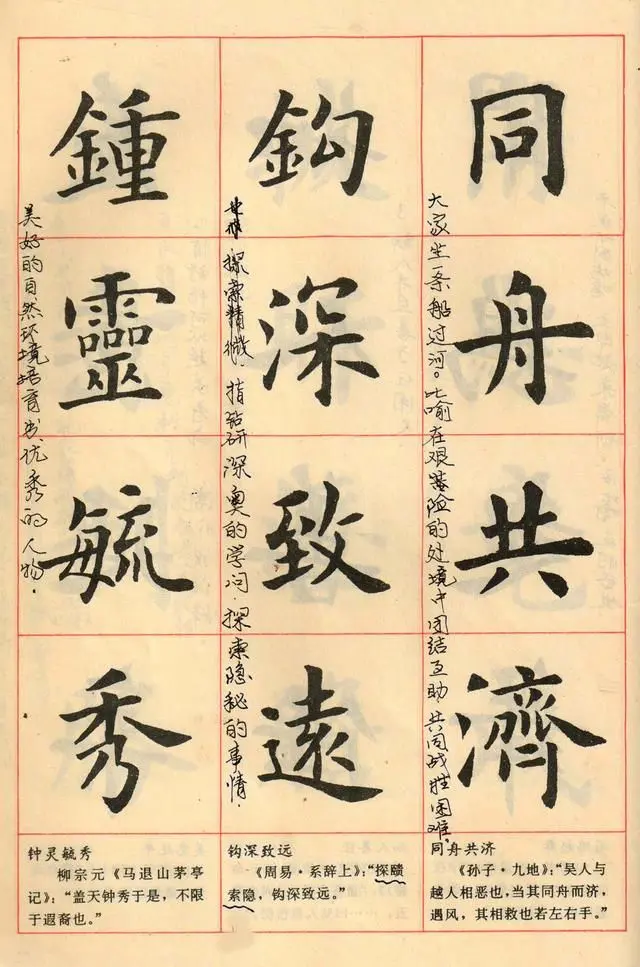 同舟共濟
大家坐一条船过河。比喻在艰险的处境中团结互助,共同战胜困难。
同舟共济
《孙子·九地》:“吴人与
越人相恶也,当其同舟而济,
遇风,其相救也若左右手。”
鈎深致遠
探索精微.指钻研深奥的学问.探索隐秘的事情.
钩深致远
《周易·系辞上》:“探赜
索隐,钩深致远。”
鍾靈毓秀
美好的自然环境培育出优秀的人物.
钟灵毓秀
柳宗元《马退山茅亭
记》:“盖天钟秀于是,不限
于遐裔也。”